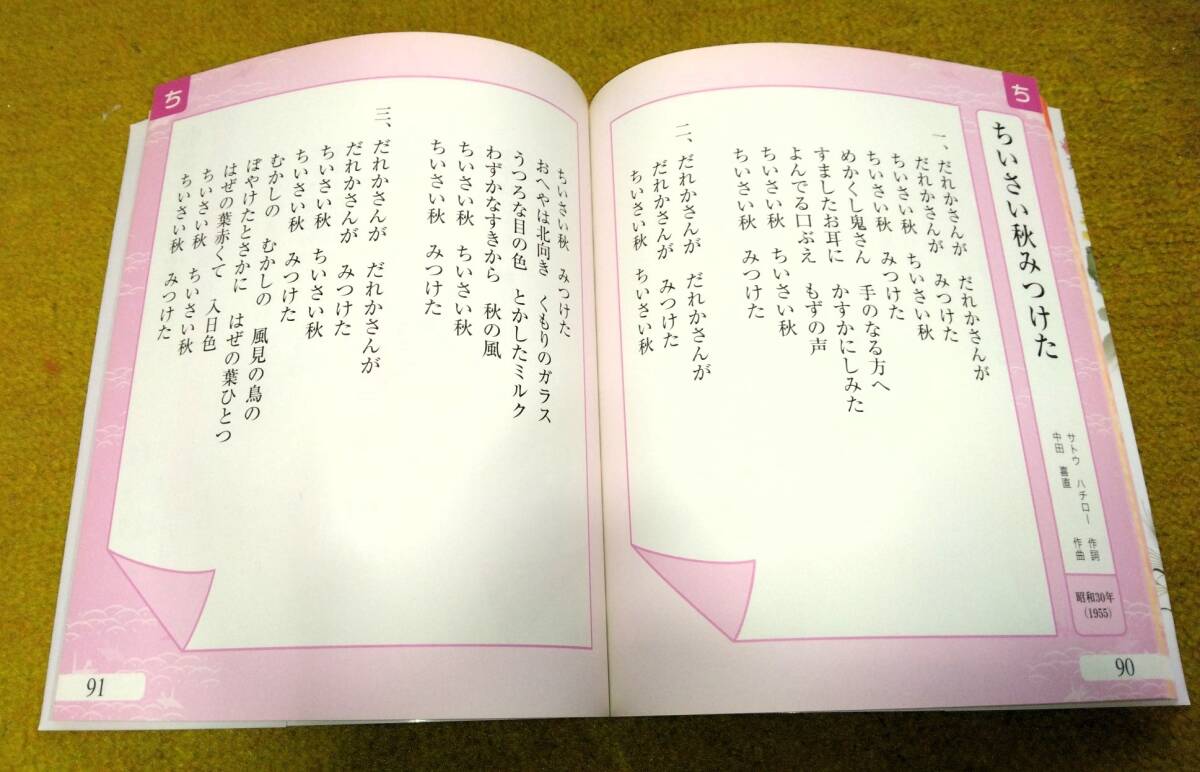 ち
ちいさい秋みつけた
サトウ　ハチロー　作詞
中田　喜直　作曲
昭和30年
(1955)
一、だれかさんが　だれかさんが
だれかさんが　みつけた
ちいさい秋　ちいさい秋
ちいさい秋　みつけた
めかくし鬼さん　手のなる方へ
すましたお耳に　かすかにしみた
よんでる口ぶえ　もずの声
ちいさい秋　ちいさい秋
ちいさい秋　みつけた
二、だれかさんが　だれかさんが
だれかさんが　みつけた
ちいさい秋　ちいさい秋
90
ち
ちいさい秋　みつけた
おへやは北向き　くもりのガラス
うつろな目の色　とかしたミルク
わずかなすきから　秋の風
ちいさい秋　ちいさい秋
ちいさい秋　みつけた
三、だれかさんが　だれかさんが
だれかさんが　みつけた
ちいさい秋　ちいさい秋
ちいさい秋　みつけた
むかしの　むかしの　風見の鳥の
ぼやけたとさかに　はぜの葉ひとつ
はぜの葉赤くて　入日色
ちいさい秋　ちいさい秋
ちいさい秋　みつけた
91